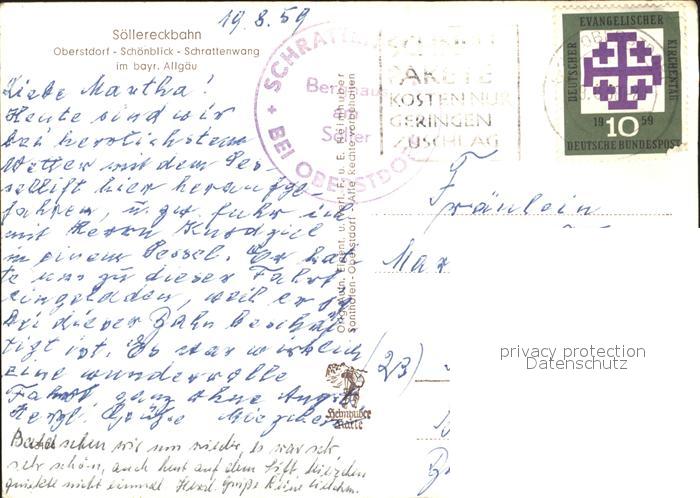 Söllereckbahn
Oberstdorf - Schönblick - Schrattenwang
im bayr. Allgäu
19.8.59
Liebe Martha!
Heute sind wir
bei herrlichstem
Wetter mit dem Ses-
sellift hier heraufge-
fahren, u. zw. fuhr ich
mit Herrn
in einem Sessel. Er hat-
te uns zu dieser Fahrt
eingeladen, weil er ja
bei dieser Bahn beschäf-
tigt ist. Es war wirklich
eine wundervolle
Fahrt ganz ohne Angst
Herzl. Grüße
Bald sehen wir uns wieder, es war sehr
sehr schön, auch heut auf dem Lift
nicht einmal Herzl. Grüße
SCHRATTEN
Berghaus
am
Söller
BEI OBERSTDORF
PAKETE
KOSTEN NUR
GERINGEN
ZUSCHLAG
DEUTSCHER EVANGELISCHER KIRCHENTAG
1959
10
DEUTSCHE BUNDESPOST
Originalaufn. Eigent. u. Verl. F. u. E. Heimhuber
Sonthofen - Oberstdorf - Alle Rechte vorbehalten
Heimhuber
Karte
Fräulein
Mar
(2B)
privacy protection
Datenschutz